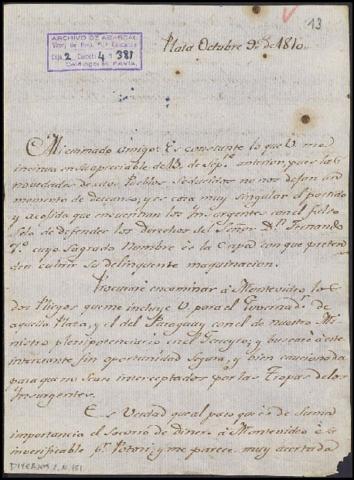 13
ARCHIVO DE ABASCAL
Caja 2 Carpeta 4 n 381
Plata Octubre 9 de 1810.
Mi estimado amigo: Es constante lo que V me
insinua en su apreciable de 13 de Sep.e anterior, pues las
novedades de estos Pueblos seducidos no nos dejan un
momento de descanso, y es cosa muy singular el partido
y acogida que encuentran los Insurgentes con el falso
de defender los derechos del Señor D.n Fernando
7.º cuyo Sagrado Nombre es la Capa con que preten
den cubrir su delinquente maquinacion.
Procuraré encaminar á Montevideo los
dos Pliegos que me incluye V. para el Governad.r de
aquella Plaza, y el del Paraguay con el de nuestro Mi
nistro plenipotenciario en el Geneyro, y buscaré á este
interesante fin oportunidad segura, y bien caucionada
para que no sean interceptados por las Tropas de los
Insurgentes.
Es Verdad que al paso que es de suma
importancia el socorro de dinero á Montevideo es
inverificable p.r Potosi, y me parece muy acertada
DIVERSOS 2 N 151